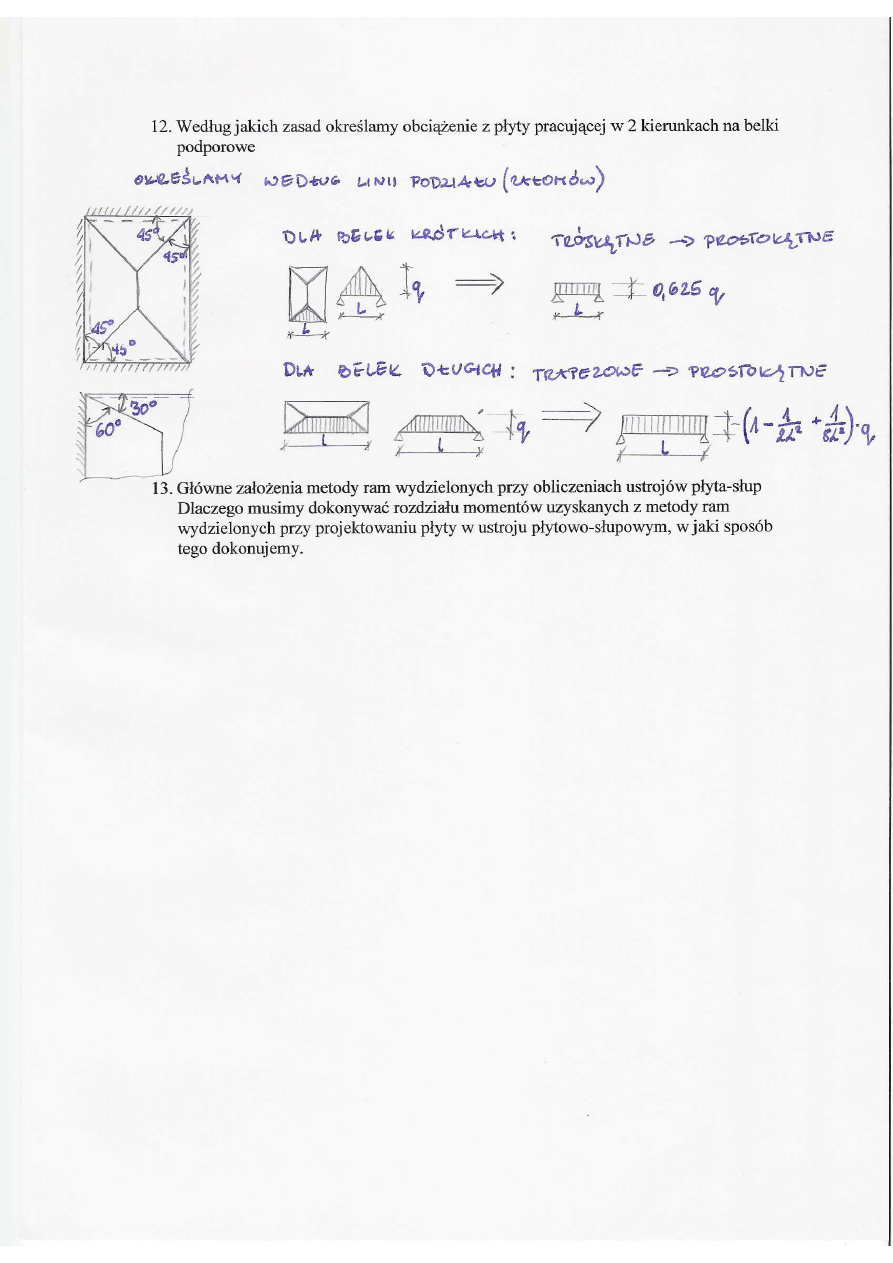 12. Według jakich zasad określamy obciążenie z płyty pracującej w 2 kierunkach na belki
podporowe
OKREŚLAMY WEDŁUG LINII PODZIAŁU (ZAŁOMÓW)
45°
45°
45°
45°
DLA BELEK KRÓTKICH: TRÓJKĄTNE → PROSTOKĄTNE
q
L
L
⇒
L
0,625 q
DLA BELEK DŁUGICH: TRAPEZOWE → PROSTOKĄTNE
30°
60°
L
L
q
⇒
L
(1 - 1/2L² + 1/8L²)·q
13. Główne założenia metody ram wydzielonych przy obliczeniach ustrojów płyta-słup
Dlaczego musimy dokonywać rozdziału momentów uzyskanych z metody ram
wydzielonych przy projektowaniu płyty w ustroju płytowo-słupowym, w jaki sposób
tego dokonujemy.